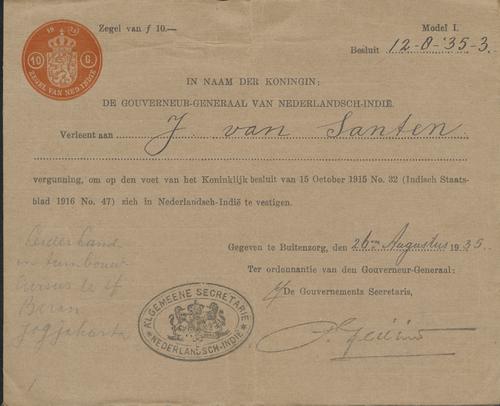 Zegel van ƒ 10.—
Model I.
Besluit 12-8-'35-3.
10 G.
ZEGEL VAN NED. INDIË
IN NAAM DER KONINGIN:
DE GOUVERNEUR-GENERAAL VAN NEDERLANDSCH-INDIË.
Verleent aan J van Santen
vergunning, om op den voet van het Koninklijk besluit van 15 October 1915 No. 32 (Indisch Staats-
blad 1916 No. 47) zich in Nederlandsch-Indië te vestigen.
Gegeven te Buitenzorg, den 26en Augustus 1935.
Ter ordonnantie van den Gouverneur-Generaal:
De Gouvernements Secretaris,
ALGEMEENE SECRETARIE
NEDERLANDSCH-INDIË
Onder
en tuinbouw
Cursus te
Beran
Jogjakarta